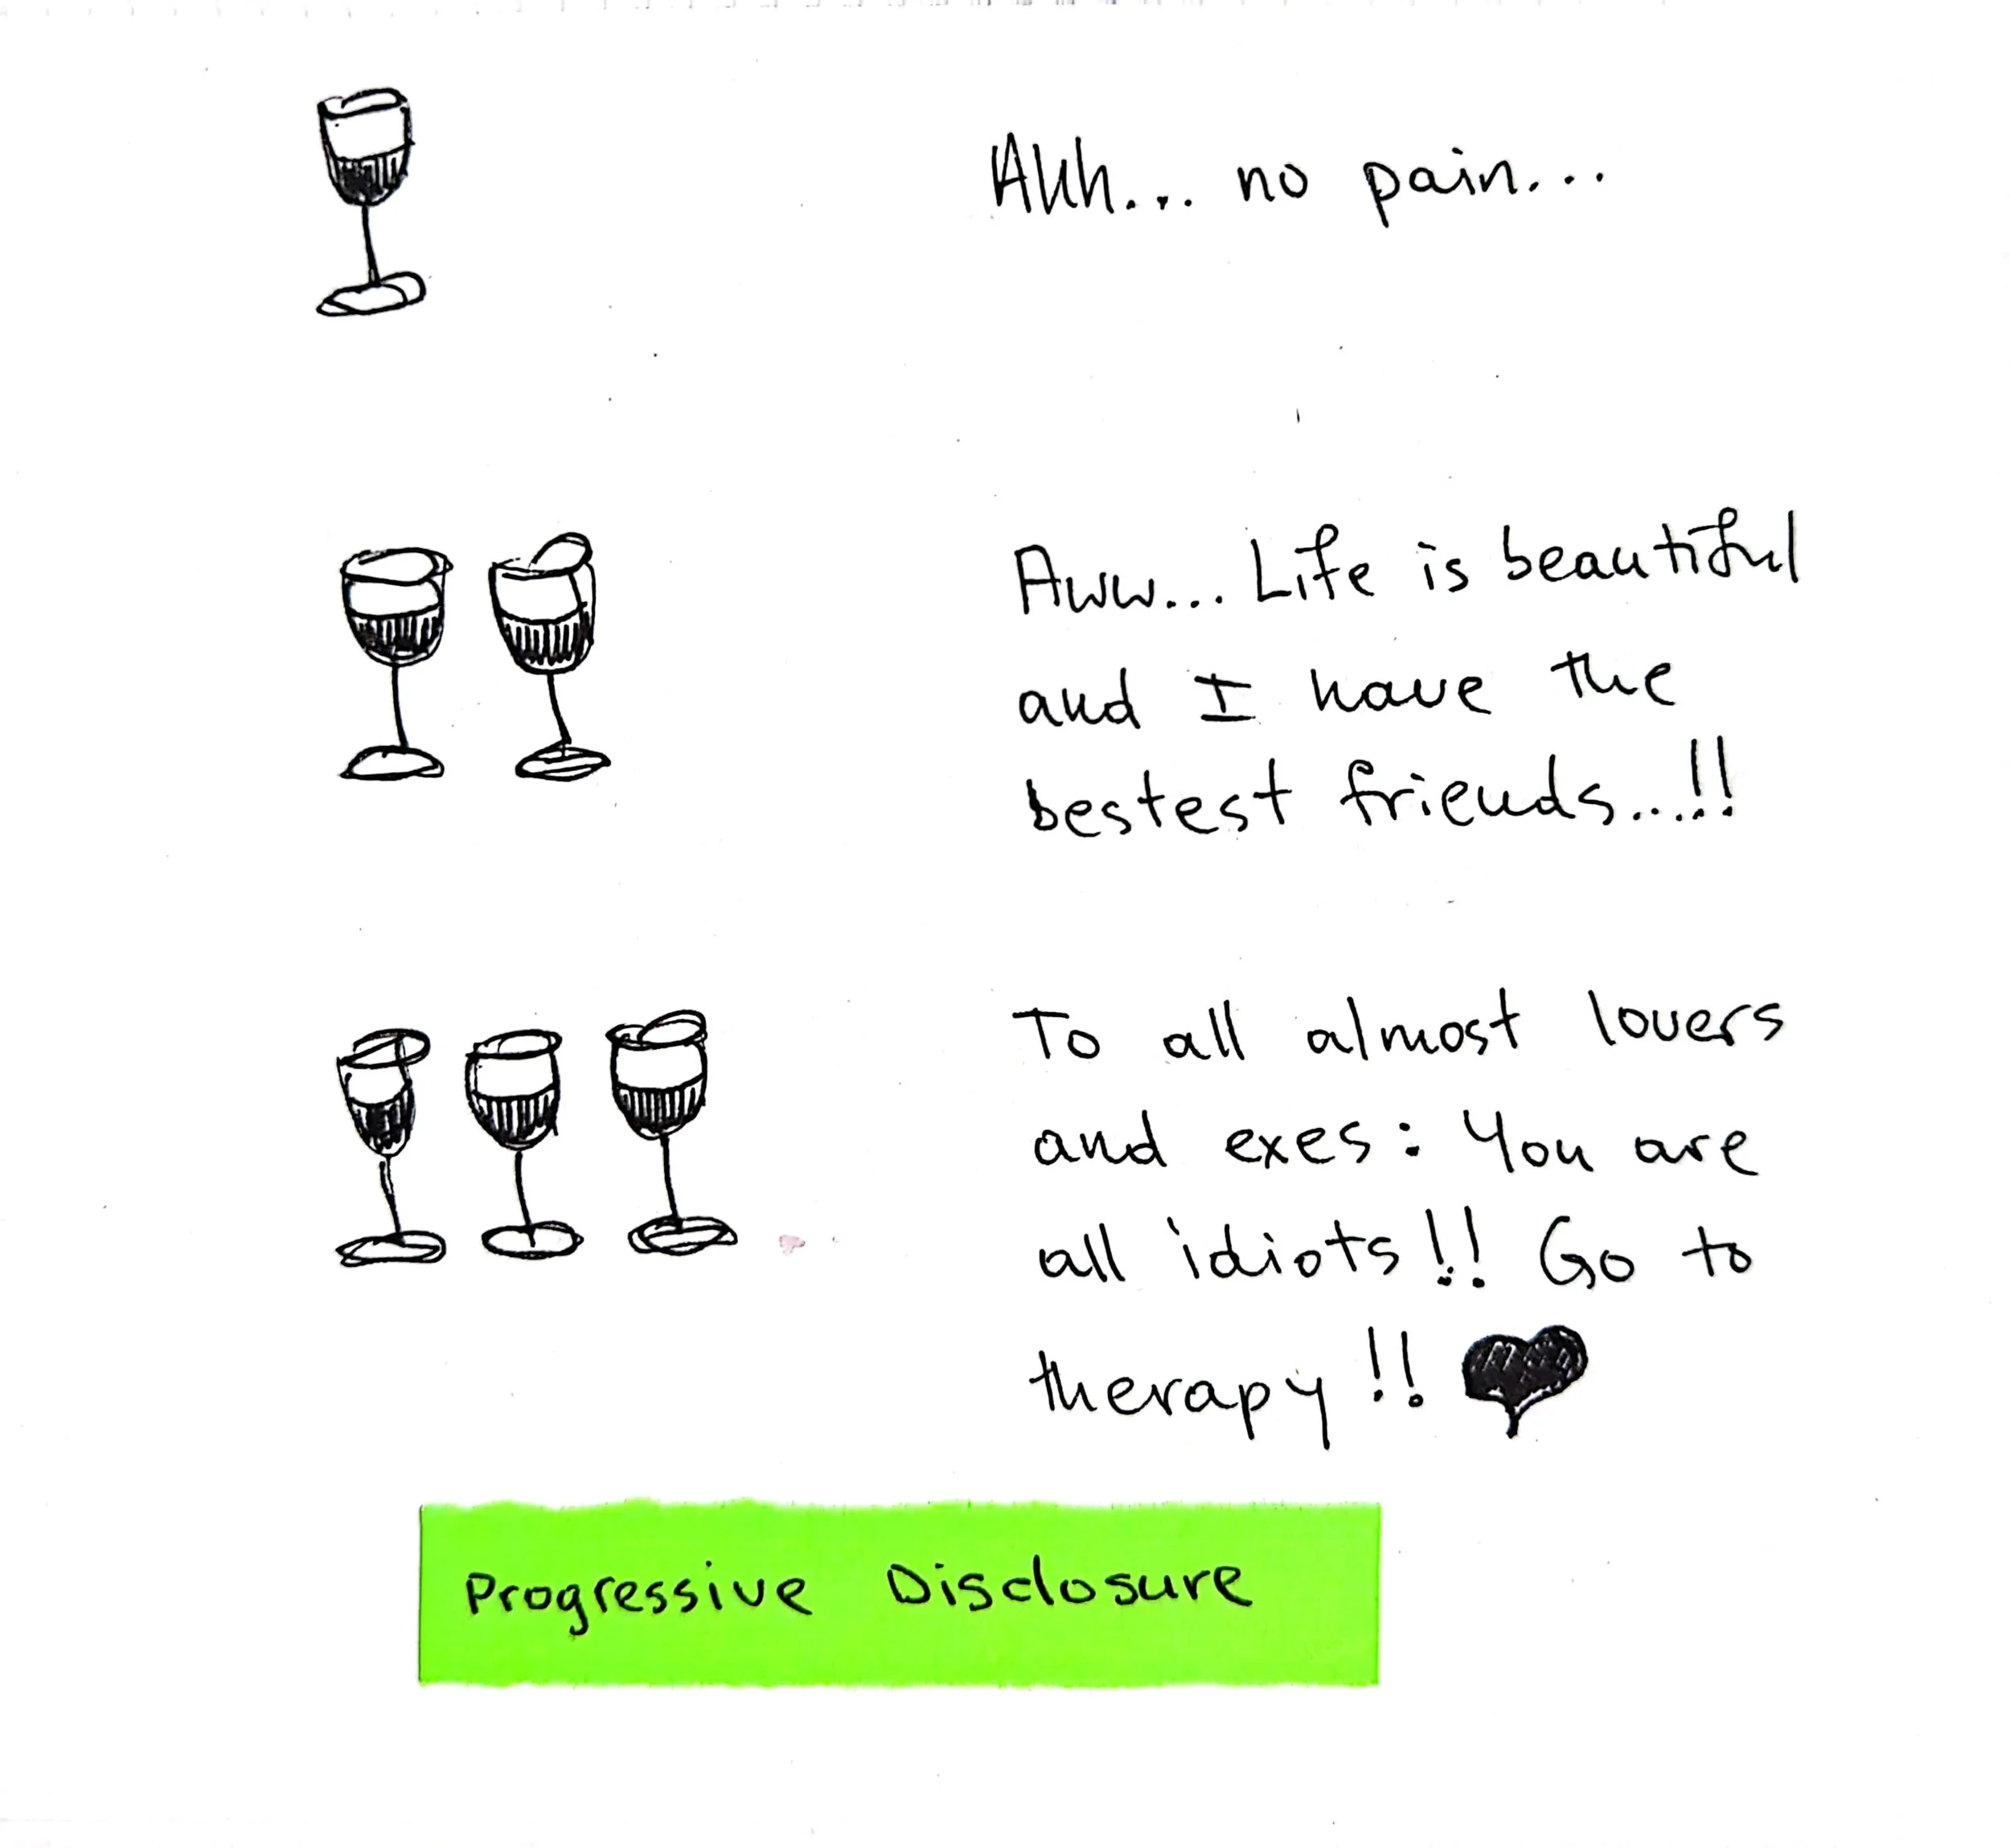 Ahh... no pain...
Aww... Life is beautiful
and I have the
bestest friends...!!
To all almost lovers
and exes: You are
all idiots!! Go to
therapy!!
Progressive Disclosure